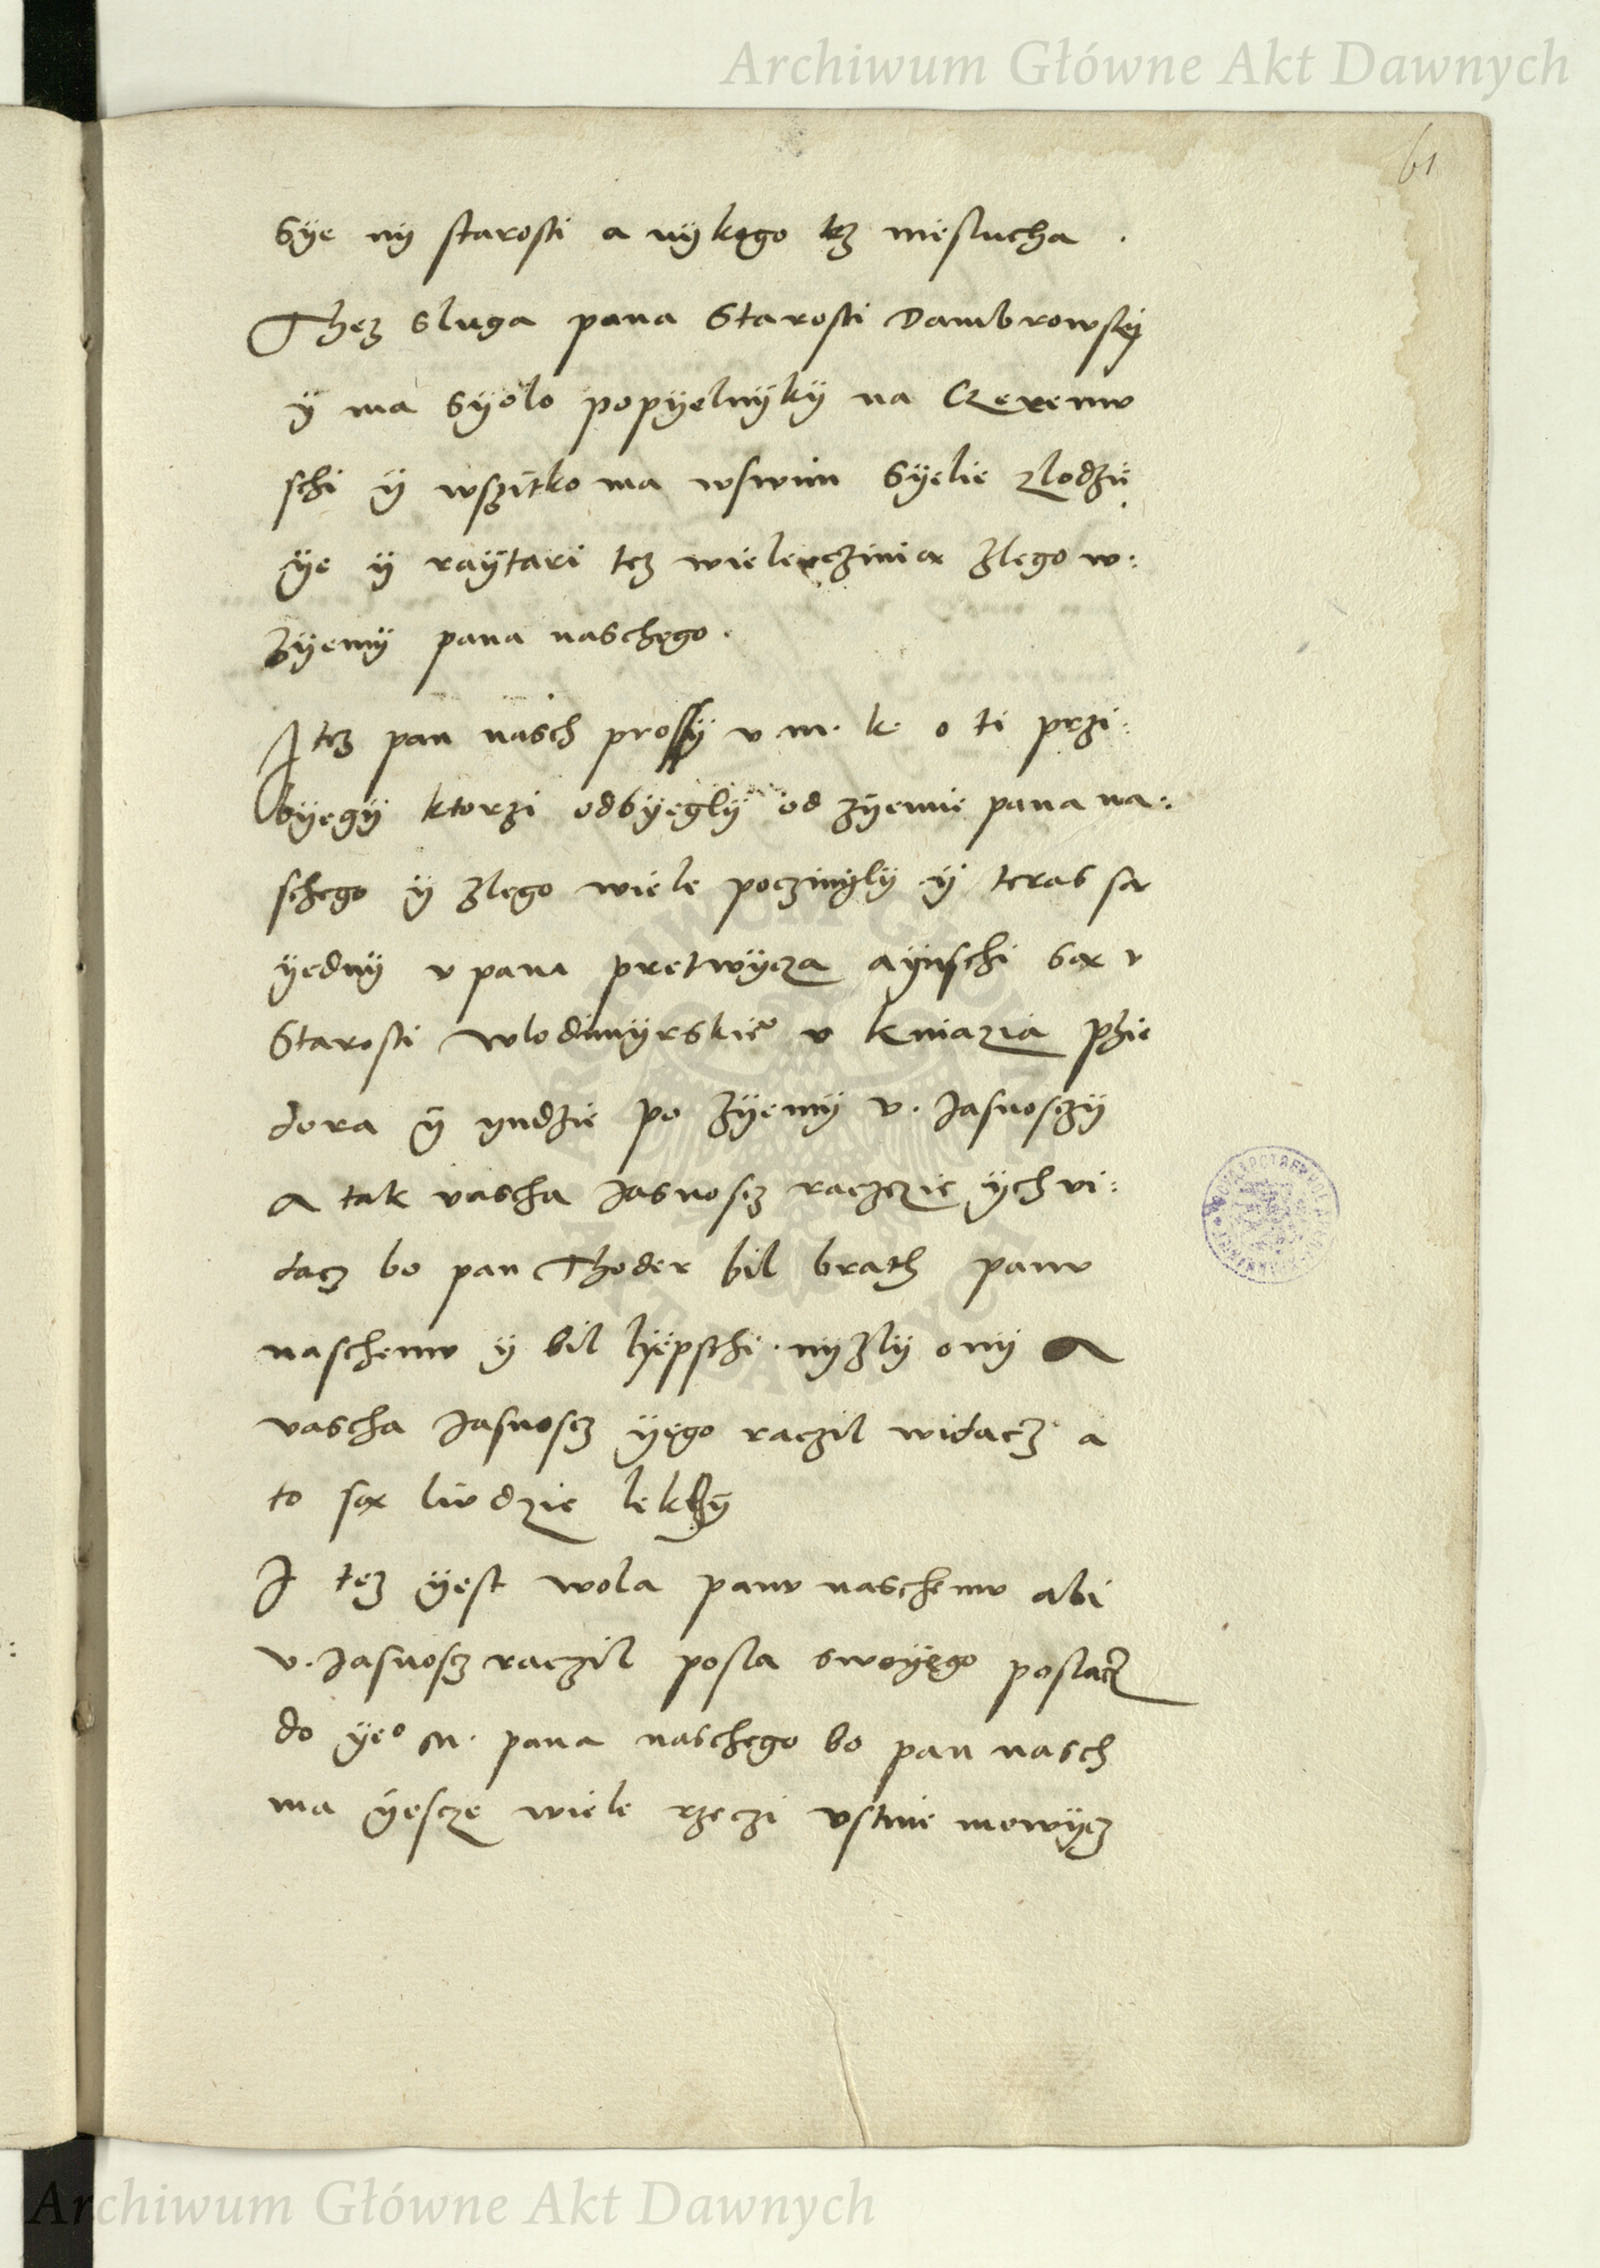 Archiwum Główne Akt Dawnych
61
Sÿe nÿ starosti a nÿkogo tez niesłucha .
Thez sluga pana Starosti Dambrowskÿ
ÿ ma sÿolo popÿelnÿkÿ na Czeremo
schi ÿ wszitko ma wswim sÿelie zlodzie
ÿe ÿ raÿtari tez wiele vczinia zlego w:
zÿemÿ pana naschego .
I tez pan nasch prossÿ v m. k. o ti przi:
bÿegÿ ktorzi odbÿeglÿ od zÿemie pana na:
schego ÿ zlego wiele poczinÿlÿ ÿ teras sa
ÿednÿ v pana pretwÿcza aÿnschi sa v
Starosti wlodimÿrskieo v kniazia phie
dora ÿ ÿndzie po zÿemÿ v. Jasnosczÿ
a tak vascha Jasnoscz raczczie ÿch vi:
dacz bo pan Thoder bil brath panv
naschemv ÿ bil lÿepschi nÿzlÿ onÿ a
vascha Jasnoscz ÿego raczil widacz a
to sa liudzie lekczÿ
I tez ÿest wola panv naschemv abi
v. Jasnosc raczil posla swoÿego poslacz
do ÿeo m. pana naschego bo pan nasch
ma ÿescze wiele rzeczi vstnie mowÿcz
Archiwum Główne Akt Dawnych